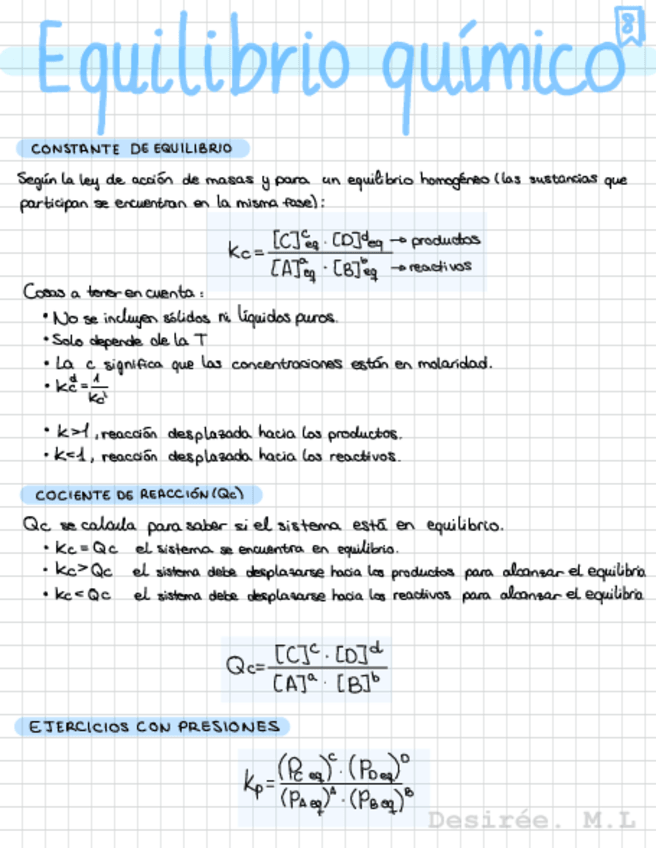 8
Equilibrio químico
CONSTANTE DE EQUILIBRIO
Según la ley de acción de masas y para un equilibrio homogéneo (las sustancias que
participan se encuentran en la misma fase):
Kc = [C]^c eq · [D]^d eq → productos
[A]^a eq · [B]^b eq → reactivos
Cosas a tener en cuenta:
• No se incluyen sólidos ni líquidos puros.
• Solo depende de la T
• La c significa que las concentraciones están en molaridad.
• Kc^d = 1
Kc^i
• K>1, reacción desplazada hacia los productos.
• K<1, reacción desplazada hacia los reactivos.
COCIENTE DE REACCIÓN (Qc)
Qc se calcula para saber si el sistema está en equilibrio.
• Kc = Qc el sistema se encuentra en equilibrio.
• Kc > Qc el sistema debe desplazarse hacia los productos para alcanzar el equilibrio
• Kc < Qc el sistema debe desplazarse hacia los reactivos para alcanzar el equilibrio
Qc = [C]^c · [D]^d
[A]^a · [B]^b
EJERCICIOS CON PRESIONES
Kp = (Pc eq)^C · (PD eq)^D
(PA eq)^A · (PB eq)^B
Desirée. M.L